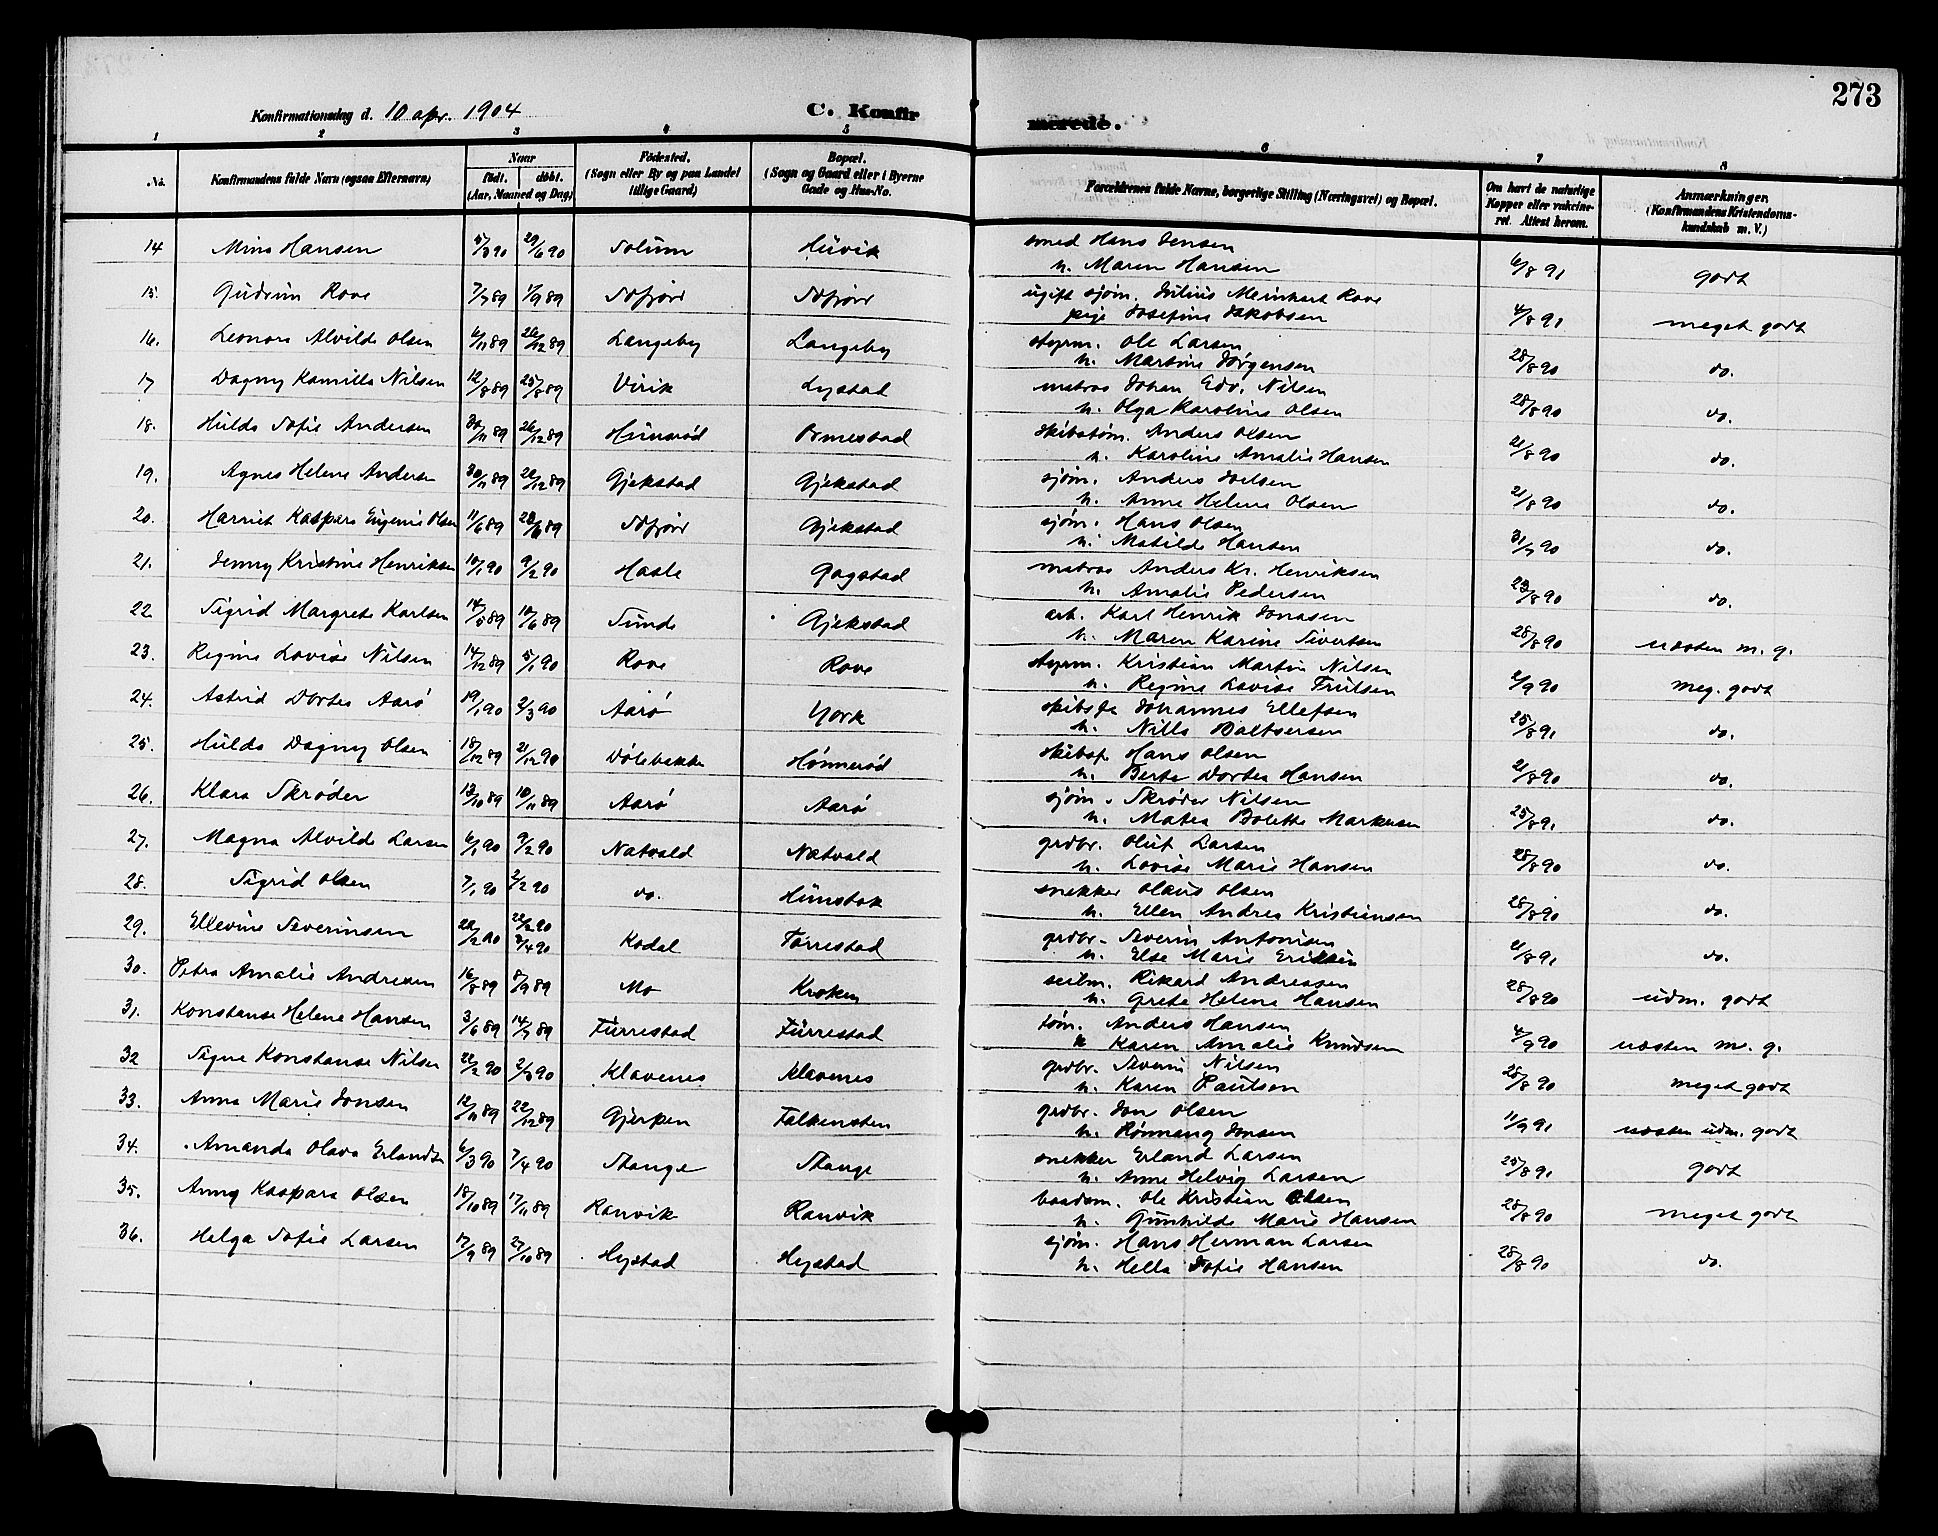 273
Konfirmationsdag d. 10 apr. 1904 C. Konfirmerede.
1 2 3 4 5 6 7 8
No. Konfirmandens fulde Navn (ogsaa Efternavn) Naar født. døbt. (Aar, Maaned og Dag) Fødested. (Sogn eller By og paa Landet tillige Gaard) Bopæl. (Sogn og Gaard eller i Byerne Gade og Hus-No. Forældrenes fulde Navne, borgerlige Stilling (Næringsvei) og Bopæl. Om havt de naturlige Kopper eller vakcineret. Attest herom. Anmærkninger (Konfirmandens Kristendomskundskab m. V.)
14 Mina Hansen 5/3 90 29/6 90 Solum Huvik smed Hans Jensen
h. Maren Hansen 6/8 91 godt
15. Gudrun Rove 7/7 89 1/9 89 Sdfjord Sdfjord ugift sjøm. Julius Meinhart Rove
pige Josefine Jakobsen 4/8 91 meget godt
16. Leonora Alvilde Olsen 6/11 89 26/12 89 Langeby Langeby styrm. Ole Larsen
h. Martine Jørgensen 28/8 90 do.
17 Dagny Kamilla Nilsen 12/8 89 25/8 89 Virik Lystad matros Johan Edv. Nilsen
h. Olga Karoline Olsen 28/8 90 do.
18. Hulda Sofie Andersen 30/11 89 26/12 89 Hunsrød Ormestad skibstøm. Anders Olsen
h. Karoline Amalie Hansen 21/8 90 do.
19. Agnes Helene Andersen 30/11 89 22/12 89 Gjekstad Gjekstad sjøm. Anders Joelsen
h. Anne Helene Olsen 21/8 90 do.
20. Harriet Kaspara Eugenie Olsen 11/6 89 23/6 89 Sdfjord Gjekstad sjøm. Hans Olsen
h. Matilde Hansen 31/7 90 do.
21. Jenny Kristine Henriksen 10/1 90 9/2 90 Hasle Gogstad matros Anders Kr. Henriksen
h. Amalie Pedersen 23/8 90 do.
22 Sigrid Margrete Karlsen 14/5 89 10/6 89 Sunde Gjekstad arb. Karl Henrik Jonasen
h. Maren Karine Sivertsen 28/8 90 næsten m. g.
23. Regine Lovise Nilsen 14/12 89 5/1 90 Rove Rove styrm. Kristian Martin Nilsen
h. Regine Lovise Trulsen 2/9 90 meg. godt
24. Astrid Dortea Aarø 19/1 90 2/3 90 Aarø York skibsfø Johannes Ellefsen
h. Nilla Baltsersen 25/8 91 do.
25. Hulda Dagny Olsen 18/12 89 21/12 90 Dølebakke Hønnerød skibsf. Hans Olsen
h. Berte Dortea Hansen 21/8 90 do.
26. Klara Skrøder 13/10 89 10/11 89 Aarø Aarø sjøm. Skrøder Nilsen
h. Matea Bolette Markusen 25/8 91 do.
27. Magna Alvilde Larsen 6/1 90 9/2 90 Natvald Natvald grdbr. Oluf Larsen
h. Lovise Marie Hansen 28/8 90 do.
28. Sigrid Olsen 7/1 90 2/2 90 do. Himstok snekker Olaus Olsen
h. Ellen Andrea Kristiansen 28/8 90 do.
29. Ellevine Severinsen 22/2 90 22/2 90 7/4 90 Kodal Tørrestad grdbr. Severin Antonisen
h. Else Marie Eriksen 21/8 91 do.
30. Petra Amalie Andresen 16/8 89 8/9 89 Mo Kroken seilm. Rikard Andreasen
h. Grete Helene Hansen 28/8 90 udm. godt
31. Konstanse Helene Hansen 3/6 89 14/7 89 Furrestad Furrestad tøm. Anders Hansen
h Karen Amalie Knudsen 4/9 90 næsten m. g.
32 Signe Konstanse Nilsen 22/2 90 2/3 90 Klavenes Klavenes grdbr. Severin Nilsen
h. Karen Paulsen 28/8 90 meget godt
33. Anna Marie Jonsen 12/11 89 22/12 89 Gjerpen Falkensten grdbr. Jon Olsen
h. Rønnaug Jonsen 11/9 91 næsten udm. godt
34. Amanda Olava Erlandsen 6/3 90 7/4 90 Stange Stange snekker Erland Larsen
h. Anne Helvig Larsen 25/8 91 godt
35. Anny Kaspara Olsen 18/10 89 17/11 89 Ranvik Ranvik baadsm. Ole Kristian Olsen
h. Gunhilde Marie Hansen 28/8 90 meget godt
36. Helga Sofie Larsen 17/9 89 27/10 89 Hystad Hystad sjøm. Hans Herman Larsen
h. Hella Sofie Hansen 28/8 90 do.